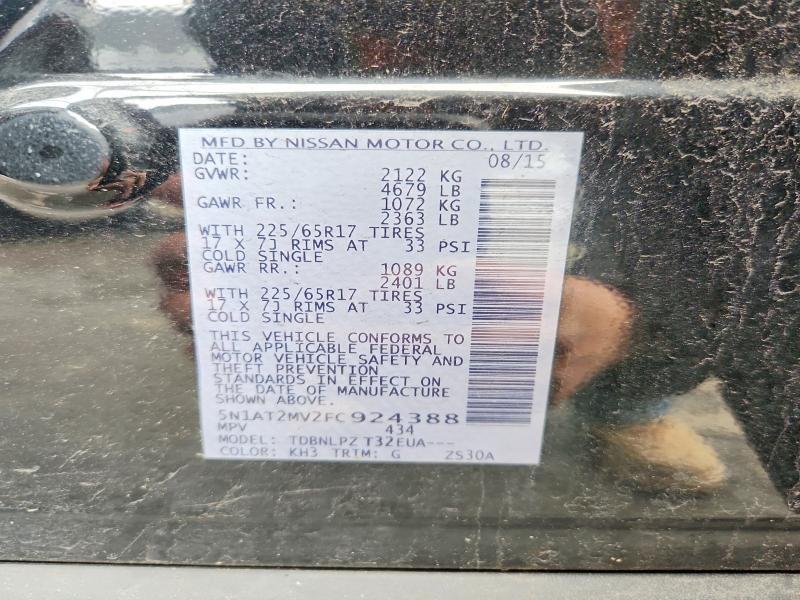 MFD BY NISSAN MOTOR CO., LTD.
DATE: 08/15
GVWR: 2122 KG
4679 LB
GAWR FR.: 1072 KG
2363 LB
WITH 225/65R17 TIRES
17 X 7J RIMS AT 33 PSI
COLD SINGLE
GAWR RR.: 1089 KG
2401 LB
WITH 225/65R17 TIRES
17 X 7J RIMS AT 33 PSI
COLD SINGLE
THIS VEHICLE CONFORMS TO
ALL APPLICABLE FEDERAL
MOTOR VEHICLE SAFETY AND
THEFT PREVENTION
STANDARDS IN EFFECT ON
THE DATE OF MANUFACTURE
SHOWN ABOVE.
5N1AT2MV2FC924388
MPV 434
MODEL: TDBNLPZ T32EUA---
COLOR: KH3 TRTM: G ZS30A